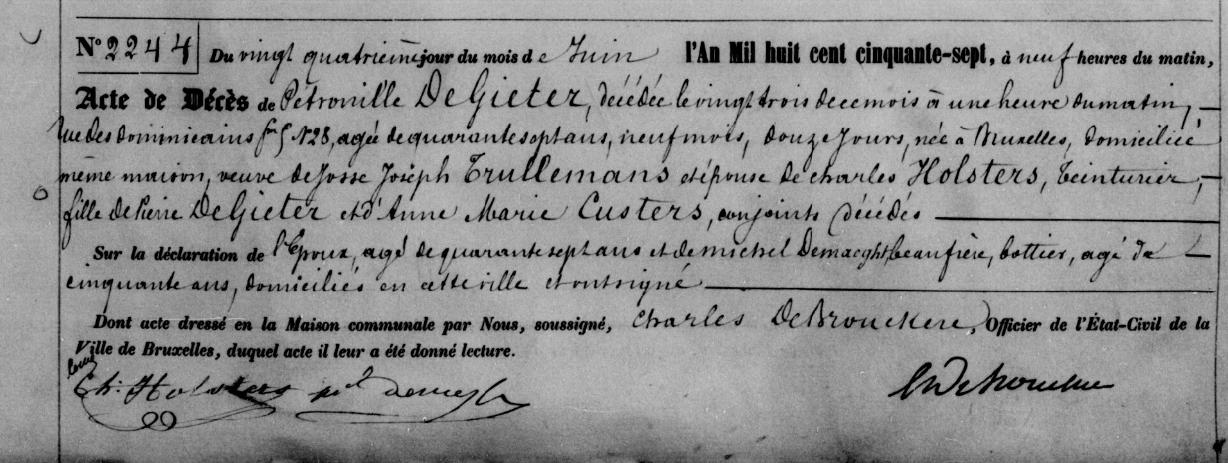 N° 2244 Du vingt quatrième jour du mois de Juin l'An Mil huit cent cinquante-sept, à neuf heures du matin,
Acte de Décès de Pétronille DeGieter, décédée le vingt trois de ce mois à une heure du matin,
rue des dominicains N28, agée de quarante sept ans, neuf mois, douze jours, née à Bruxelles, domiciliée
même maison, veuve de Josse Joséph Trullemans et épouse de charles Holsters, teinturier,
fille de Pierre DeGieter et d'Anne Marie Custers, conjoints décédés
Sur la déclaration de l'Epoux, agé de quarante sept ans et de michel Demaeght, beaufrère, bottier, agé de
cinquante ans, domiciliés en cette ville et ont signé
Dont acte dressé en la Maison communale par Nous, soussigné, Charles DeBrouckere, Officier de l'État-Civil de la
Ville de Bruxelles, duquel acte il leur a été donné lecture.
Ch. Holsters